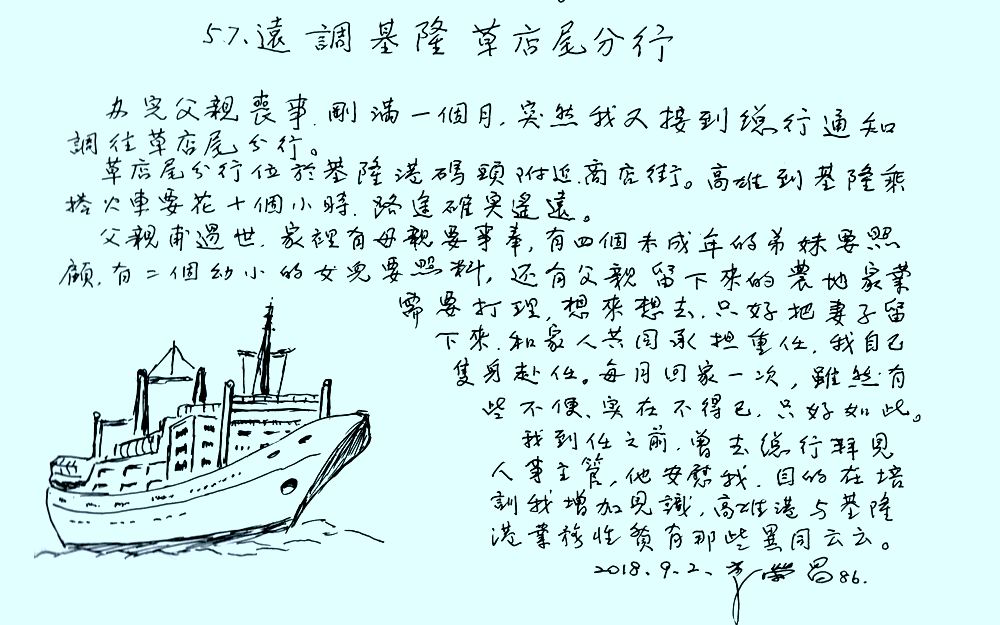 57.遠調基隆草店尾分行
办完父親喪事.剛滿一個月.突然我又接到總行通知
調往草店尾分行。
草店尾分行位於基隆港碼頭附近.商店街。高雄到基隆乘
搭火車要花十個小時.路途確实遙遠。
父親甫過世.家裡有母親要事奉,有四個未成年的弟妹要照
顧.有二個幼小的女兒要照料,还有父親留下來的農地家業
需要打理,想來想去.只好把妻子留
下來.和家人共同承担重任.我自己
隻身赴任。每月回家一次,雖然有
些不便、实在不得已.只好如此。
我到任之前.曾去總行拜見
人事主管,他安慰我.目的在培
訓我增加見識,高雄港与基隆
港業務性質有那些異同云云。
2018.9.2、 榮昌86.